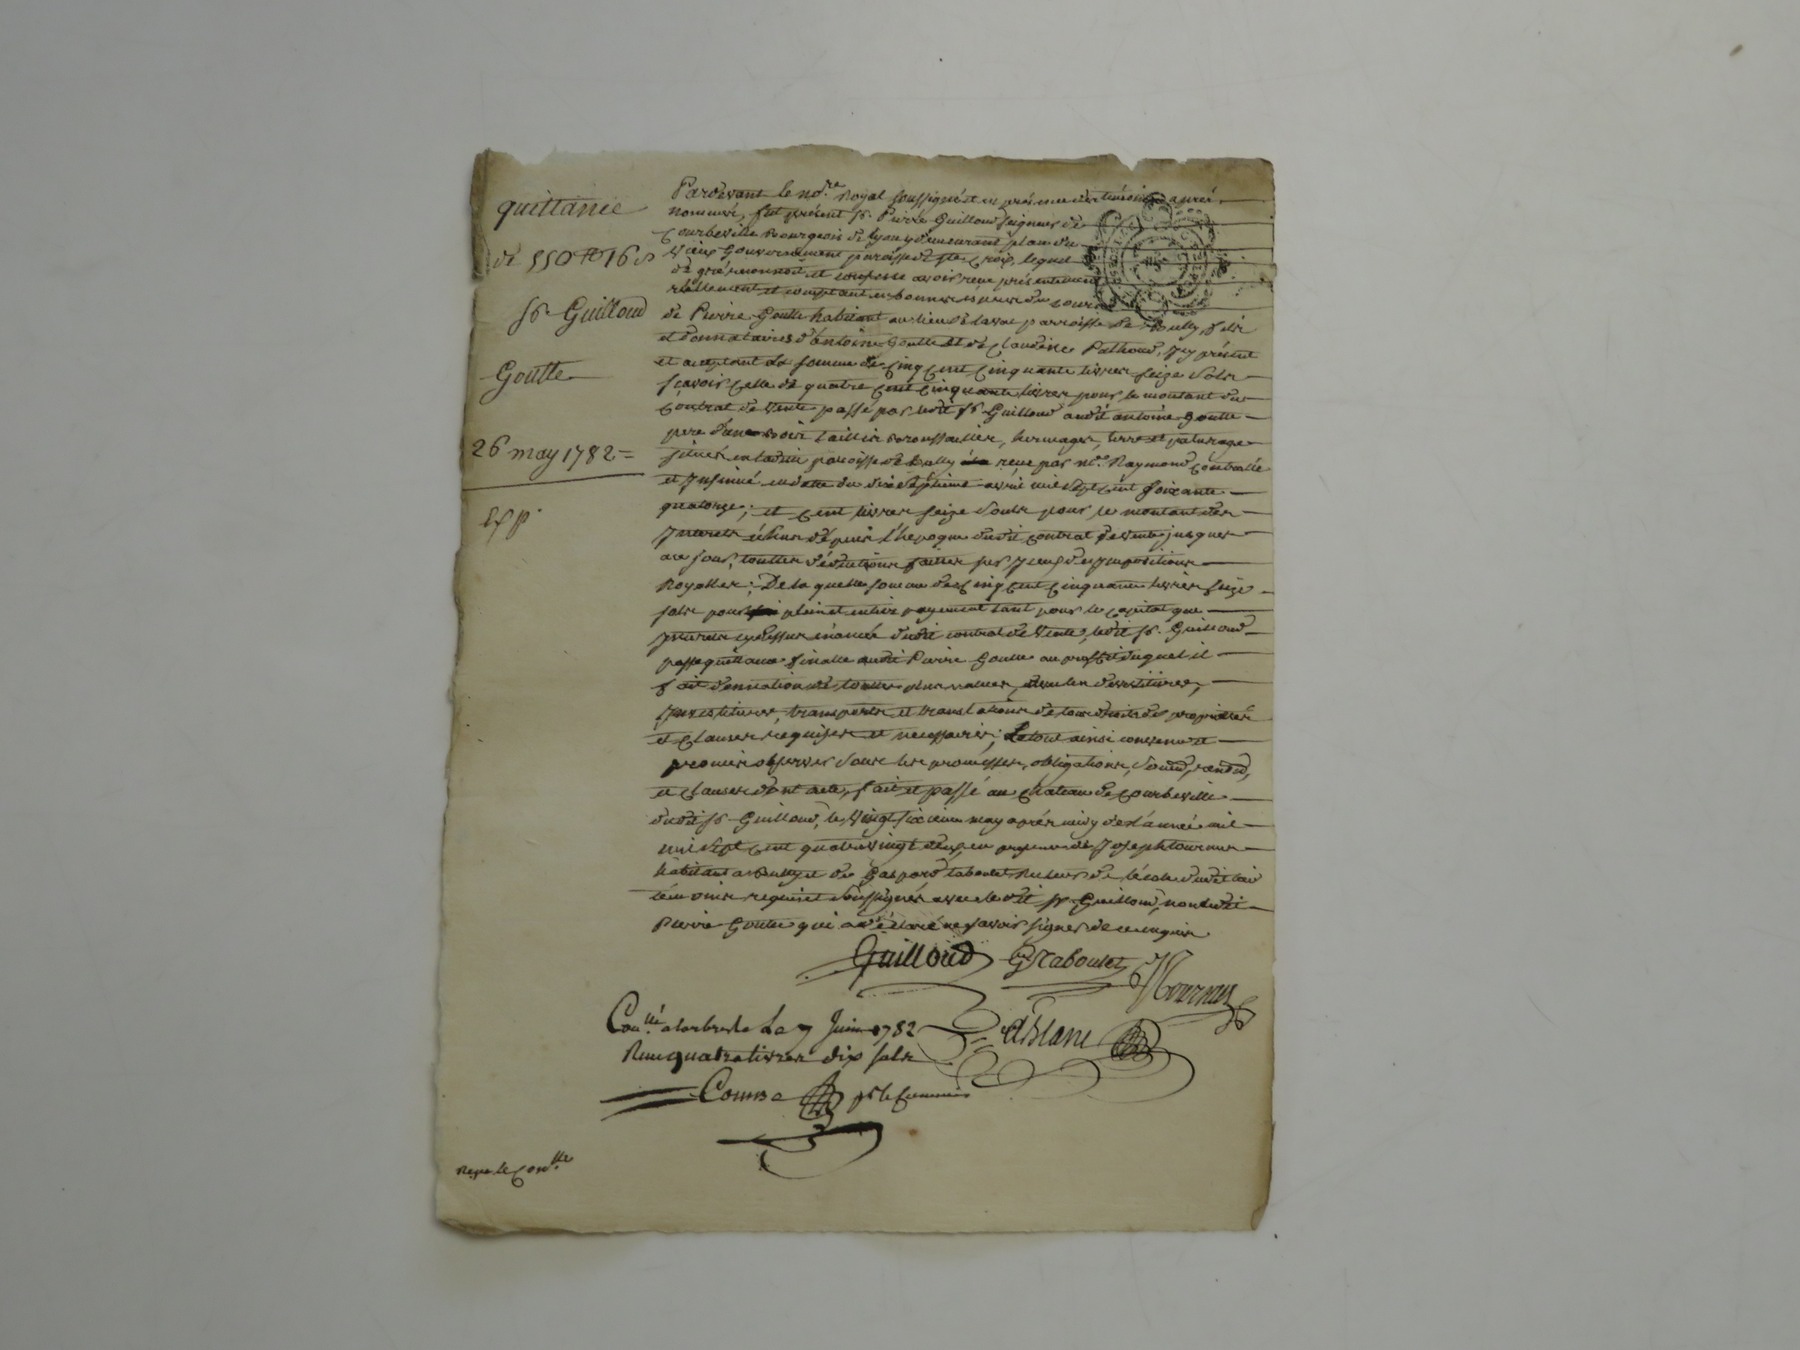 quittance
de 550 ₶ 16 s
sr Guilloud
Goutte
26 may 1782 =
Exp.
Pardevant le nore Royal soussigné et en présence des témoins après
nommés, fut présent sr Pierre Guilloud seigneur de
Courbeville Bourgeois de Lyon y demeurant place du
Vieux Gouvernement paroisse de ste Croix, lequel
de gré reconnoit et confesse avoir reçu présentement
réellement et comptant en bonnes espèces du cours
de Pierre Goutte habitant au lieu de parroisse de Bully, fils
et donnataire d'antoine Goutte et de Claudine Pathoud, Icy présent
et acceptant La somme de Cinq Cent Cinquante livres seize Sols
sçavoir Celle de quatre Cent Cinquante livres pour le montant du
Contrat de Vente passé par ledit sr Guilloud audit antoine Goutte
père d'un bois taillis broussailles, hermages, terre et paturage
situés en ladite paroisse de Bully reçu par me Raymond Controllé
et Insinué en datte du dix septième avril mil sept cent soixante
quatorze; et Cent livres seize Sols pour le montant des
Interets échus dépuis l'hepoque dudit contrat de vente jusques
a ce jour, touttes déductions faittes des Impositions
Royalles; De la quelle somme de Cinq Cent Cinquante livres seize
sols pour plein et entier payement tant pour le capital que
Interets cydessus énoncés dudit contrat de Vente, ledit sr. Guilloud
passe quittance finalle audit Pierre Goutte au proffit duquel il
fait donnation de touttes plus values, avec les devestitures,
Investitures, transports et translations de tous droits de propriétés
et Clauses requises et necessaires; Le tout ainsi convenu et
promis observer sous les promesses, obligations,
et Clauses dont acte, fait et passé au Chateau de Courbeville
dudit sr Guilloud, le Vingt sixieme may après midy de l'année mil
mil sept cent quatre vingt deux en presence de Joseph tournus
habitant a Bully et de Gaspard taboulet Recteur de l'école dudit lieu
témoins requis et soussignés avec ledit sr Guilloud, non ledit
Pierre Goutte qui a déclaré ne savoir signer de ce enquis
Guilloud G Taboulet J Tournus
Conllé a larbresle Le 7 Juin 1782
Reçu quatre livres dix sols
deBlanc
Comba pr le Commis
Reçu le Conlle